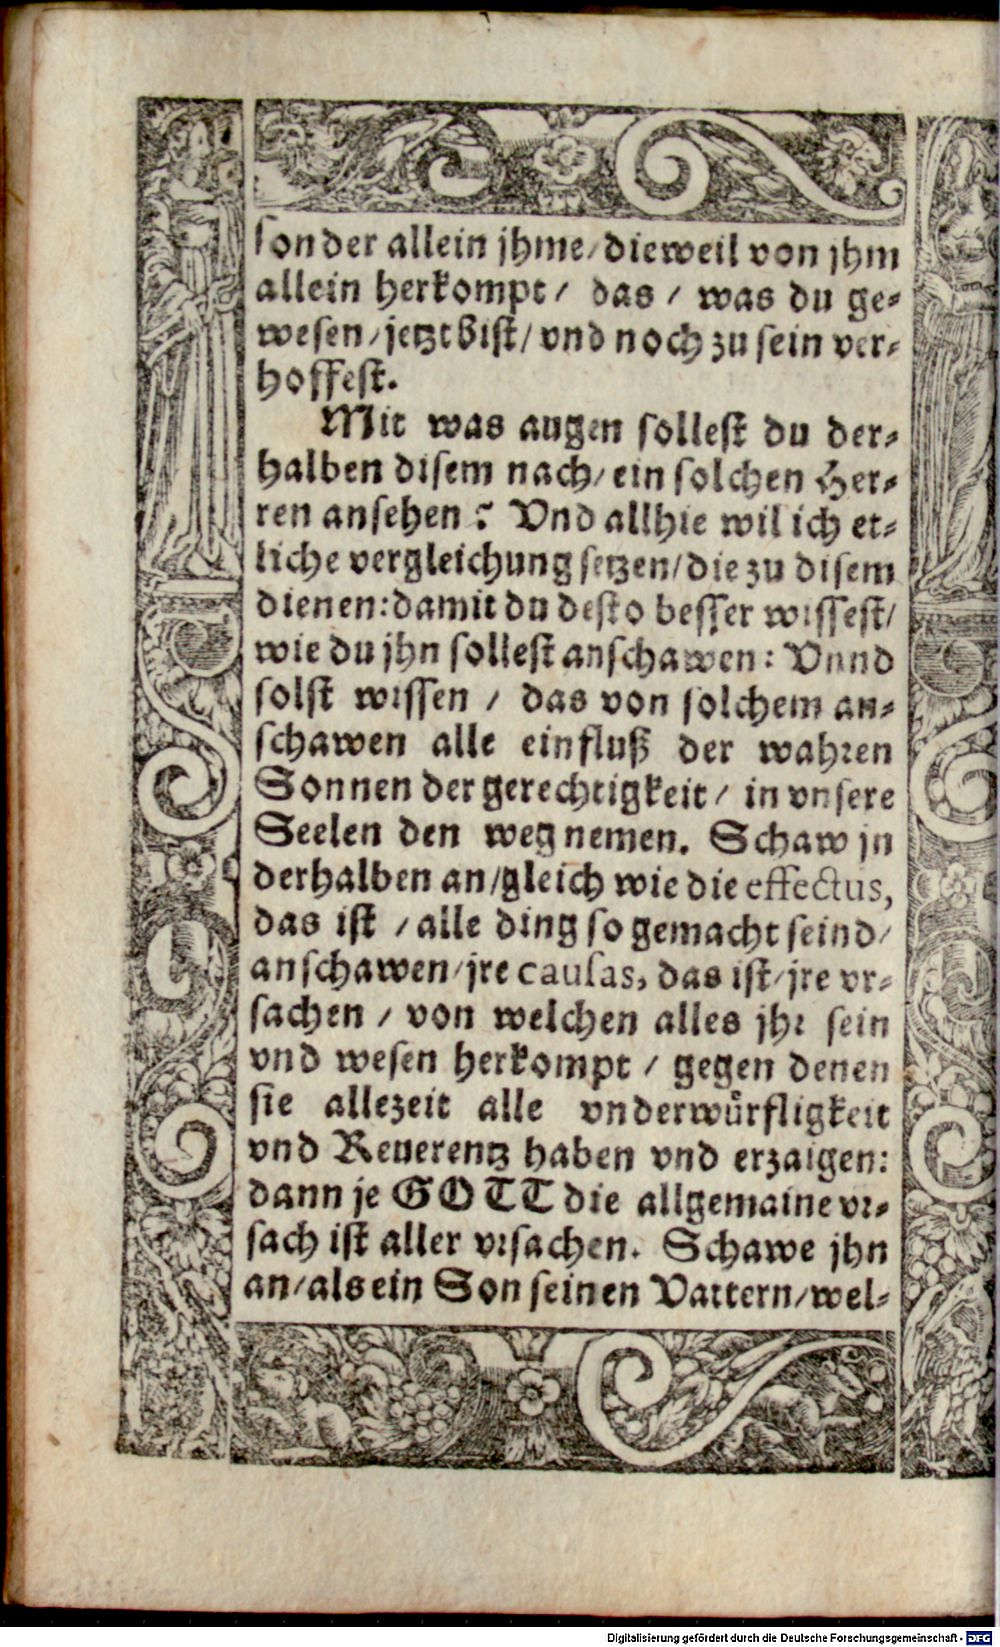 sonder allein jhme/ dieweil von jhm
allein herkompt / das / was du ge⸗
wesen / jetzt bist / vnd noch zu sein ver⸗
hoffest.
Mit was augen sollest du der⸗
halben disem nach / ein solchen Her⸗
ren ansehen? Vnd allhie wil ich et⸗
liche vergleichung setzen / die zu disem
dienen: damit du desto besser wissest /
wie du jhn sollest anschawen: Vnnd
solst wissen / das von solchem an⸗
schawen alle einfluß der wahren
Sonnen der gerechtigkeit / in vnsere
Seelen den weg nemen. Schaw jn
derhalben an / gleich wie die effectus,
das ist / alle ding so gemacht seind /
anschawen / jre causas, das ist / jre vr⸗
sachen / von welchen alles jhr sein
vnd wesen herkompt / gegen denen
sie allezeit alle vnderwuͤrfligkeit
vnd Reuerentz haben vnd erzaigen:
dann je GOTT die allgemaine vr⸗
sach ist aller vrsachen. Schawe jhn
an / als ein Son seinen Vattern / wel⸗
Digitalisierung gefördert durch die Deutsche Forschungsgemeinschaft - DFG